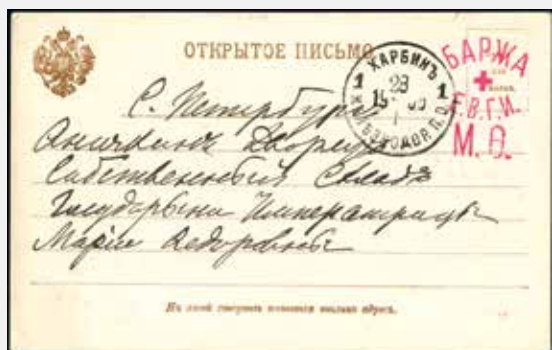 ОТКРЫТОЕ ПИСЬМО
ХАРБИНЪ
1 23 1
БАРЖА
Е.В.Г.И.
М.Ѳ.
С. Петербургъ
Аничкинъ Дворецъ
Собственный Складъ
Государыни Императрицы
Маріи Ѳедоровны
На этой сторонѣ пишется только адресъ.